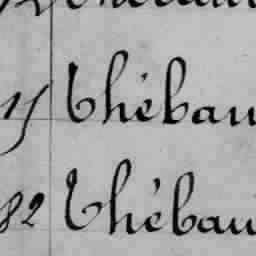 15 Thébau
82 Thébau